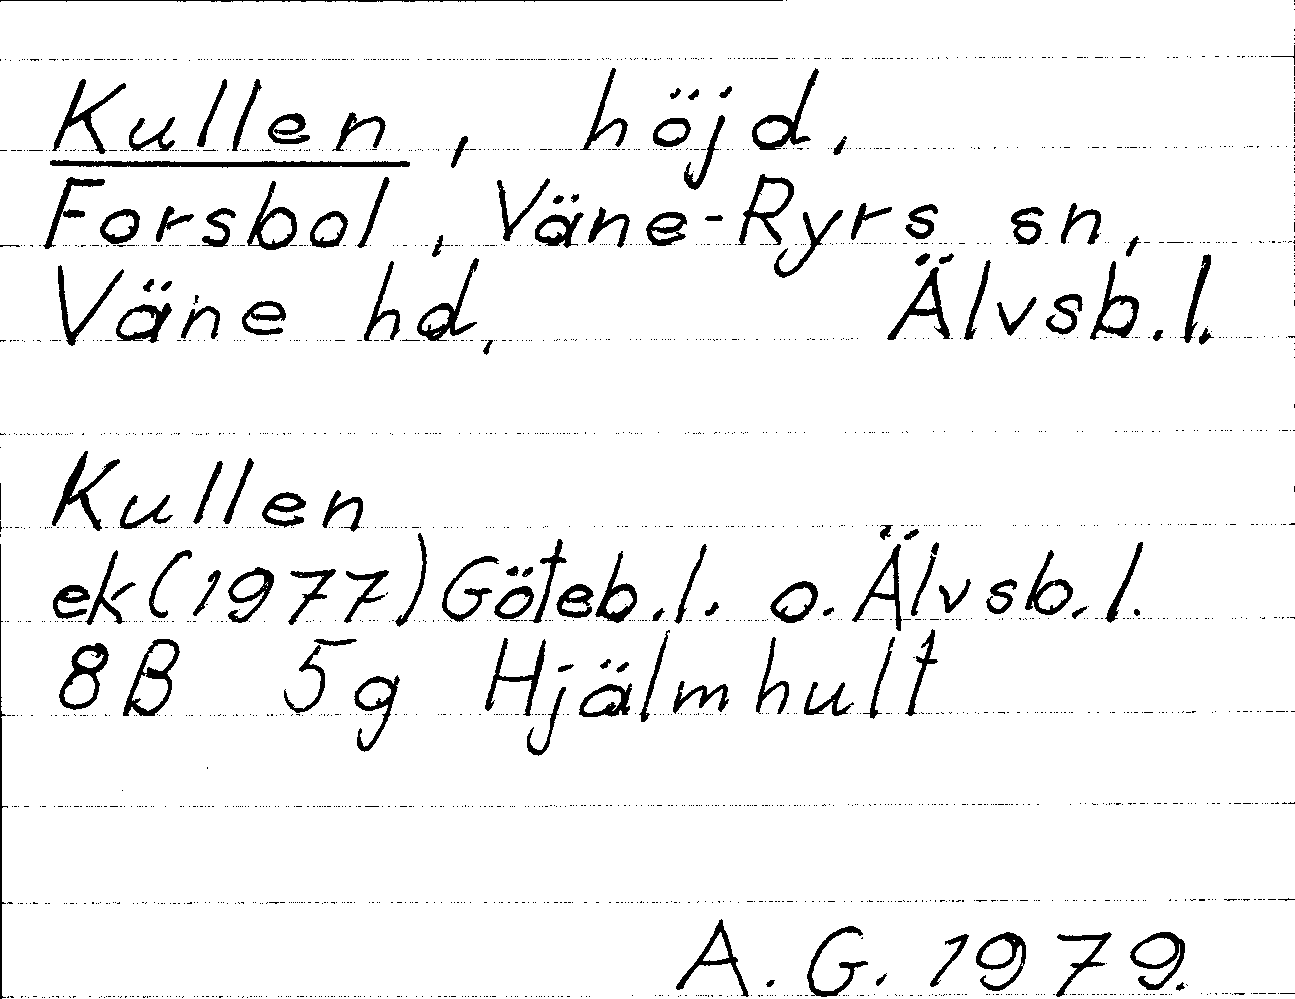 Kullen, höjd,
Forsbol, Väne-Ryrs sn,
Väne hd, Älvsb.l.
Kullen
ek(1977) Göteb.l. o. Älvsb.l.
8B 5g Hjälmhult
A.G. 1979.